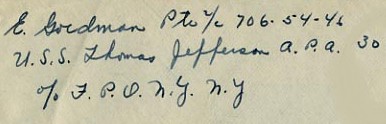 E. Goodman Ptr 2/c 706-54-46
U.S.S. Thomas Jefferson A.P.A. 30
c/o F.P.O. N.Y. N.Y